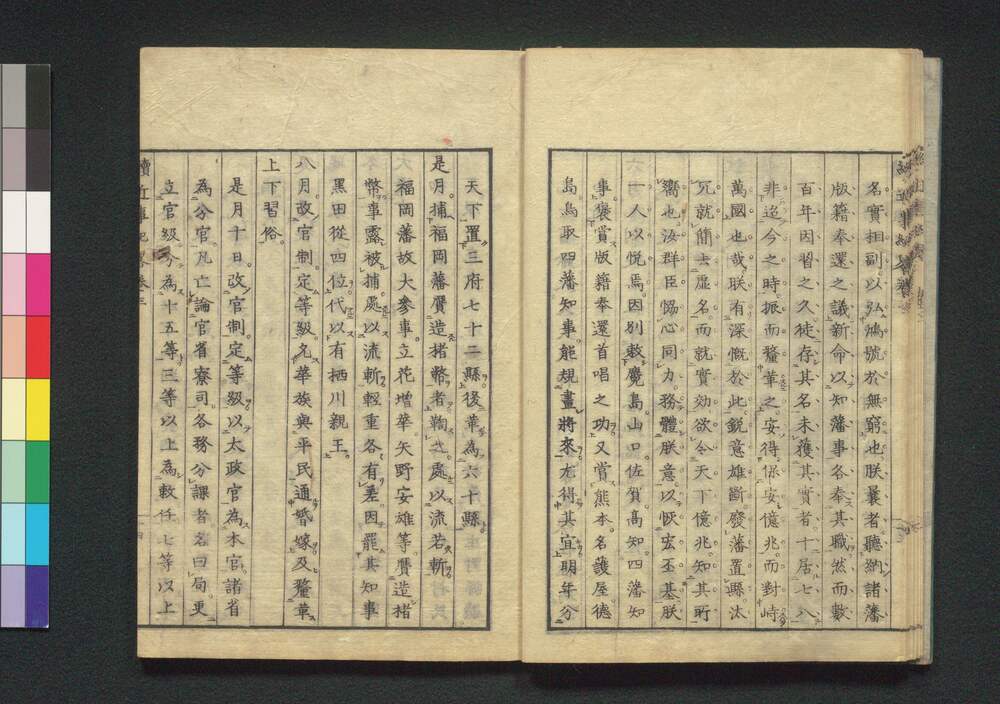 名實相副以弘鴻號於無窮也朕曩者聽納諸藩
版籍奉還之議新命以知藩事各奉其職然而數
百年因習之久徒存其名未獲其實者十居七八
非迨今之時振而釐革之安得保安億兆而對峙
萬國也哉朕有深慨於此鋭意雄斷發藩置縣汰
冗就簡去虛名而就實効欲令天下億兆知其所
嚮也汝群臣恊心同力務體朕意以恢宏丕基朕
一人以悦焉因別敕麑島山口佐賀高知四藩知
事褒賞版籍奉還首唱之功又賞熊本名護屋德
島鳥取四藩知事能規畫將來尤得其宜明年分
天下置三府七十二縣後革為六十縣
是月捕福岡藩贋造楮幣者鞫之處以流若斬
福岡藩故大參事立花增華矢野安雄等贋造楮
幣事露被捕處以流斬輕重各有差因罷其知事
黑田從四位代以有栖川親王
八月改官制定等級允華族與平民通婚嫁及釐革
上下習俗
是月十日改官制定等級以太政官為本官諸省
為分官凡亡論官省寮司各務分課者名曰局更
立官級今為十五等三等以上為敕任七等以上
續近事紀略卷三